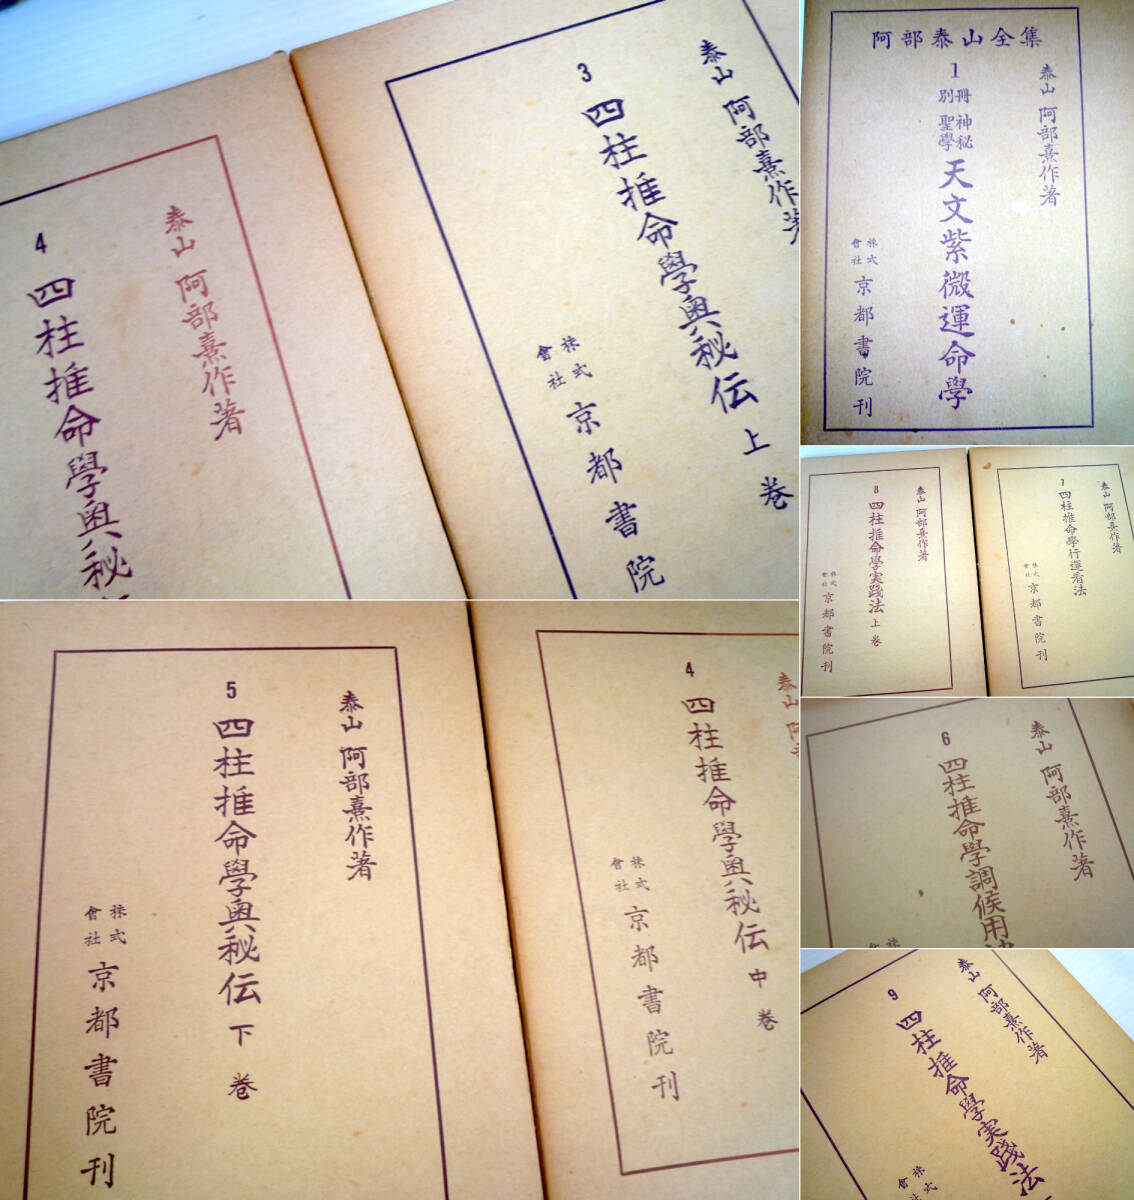 泰山 阿部熹作著
3 四柱推命學奥秘伝 上巻
株式會社 京都書院
泰山 阿部熹作著
4 四柱推命學奥秘
阿部泰山全集
泰山 阿部熹作著
1 別冊 神秘聖學 天文紫微運命學
株式會社 京都書院刊
泰山 阿部熹作著
7 四柱推命學行運看法
株式會社 京都書院刊
泰山 阿部熹作著
8 四柱推命學実踐法 上巻
株式會社 京都書院刊
泰山 阿部熹作著
6 四柱推命學調候用
泰山 阿部熹作著
9 四柱推命學実踐法
株式會社
泰山 阿
4 四柱推命學奥秘伝 中巻
株式會社 京都書院刊
泰山 阿部熹作著
5 四柱推命學奥秘伝 下巻
株式會社 京都書院刊